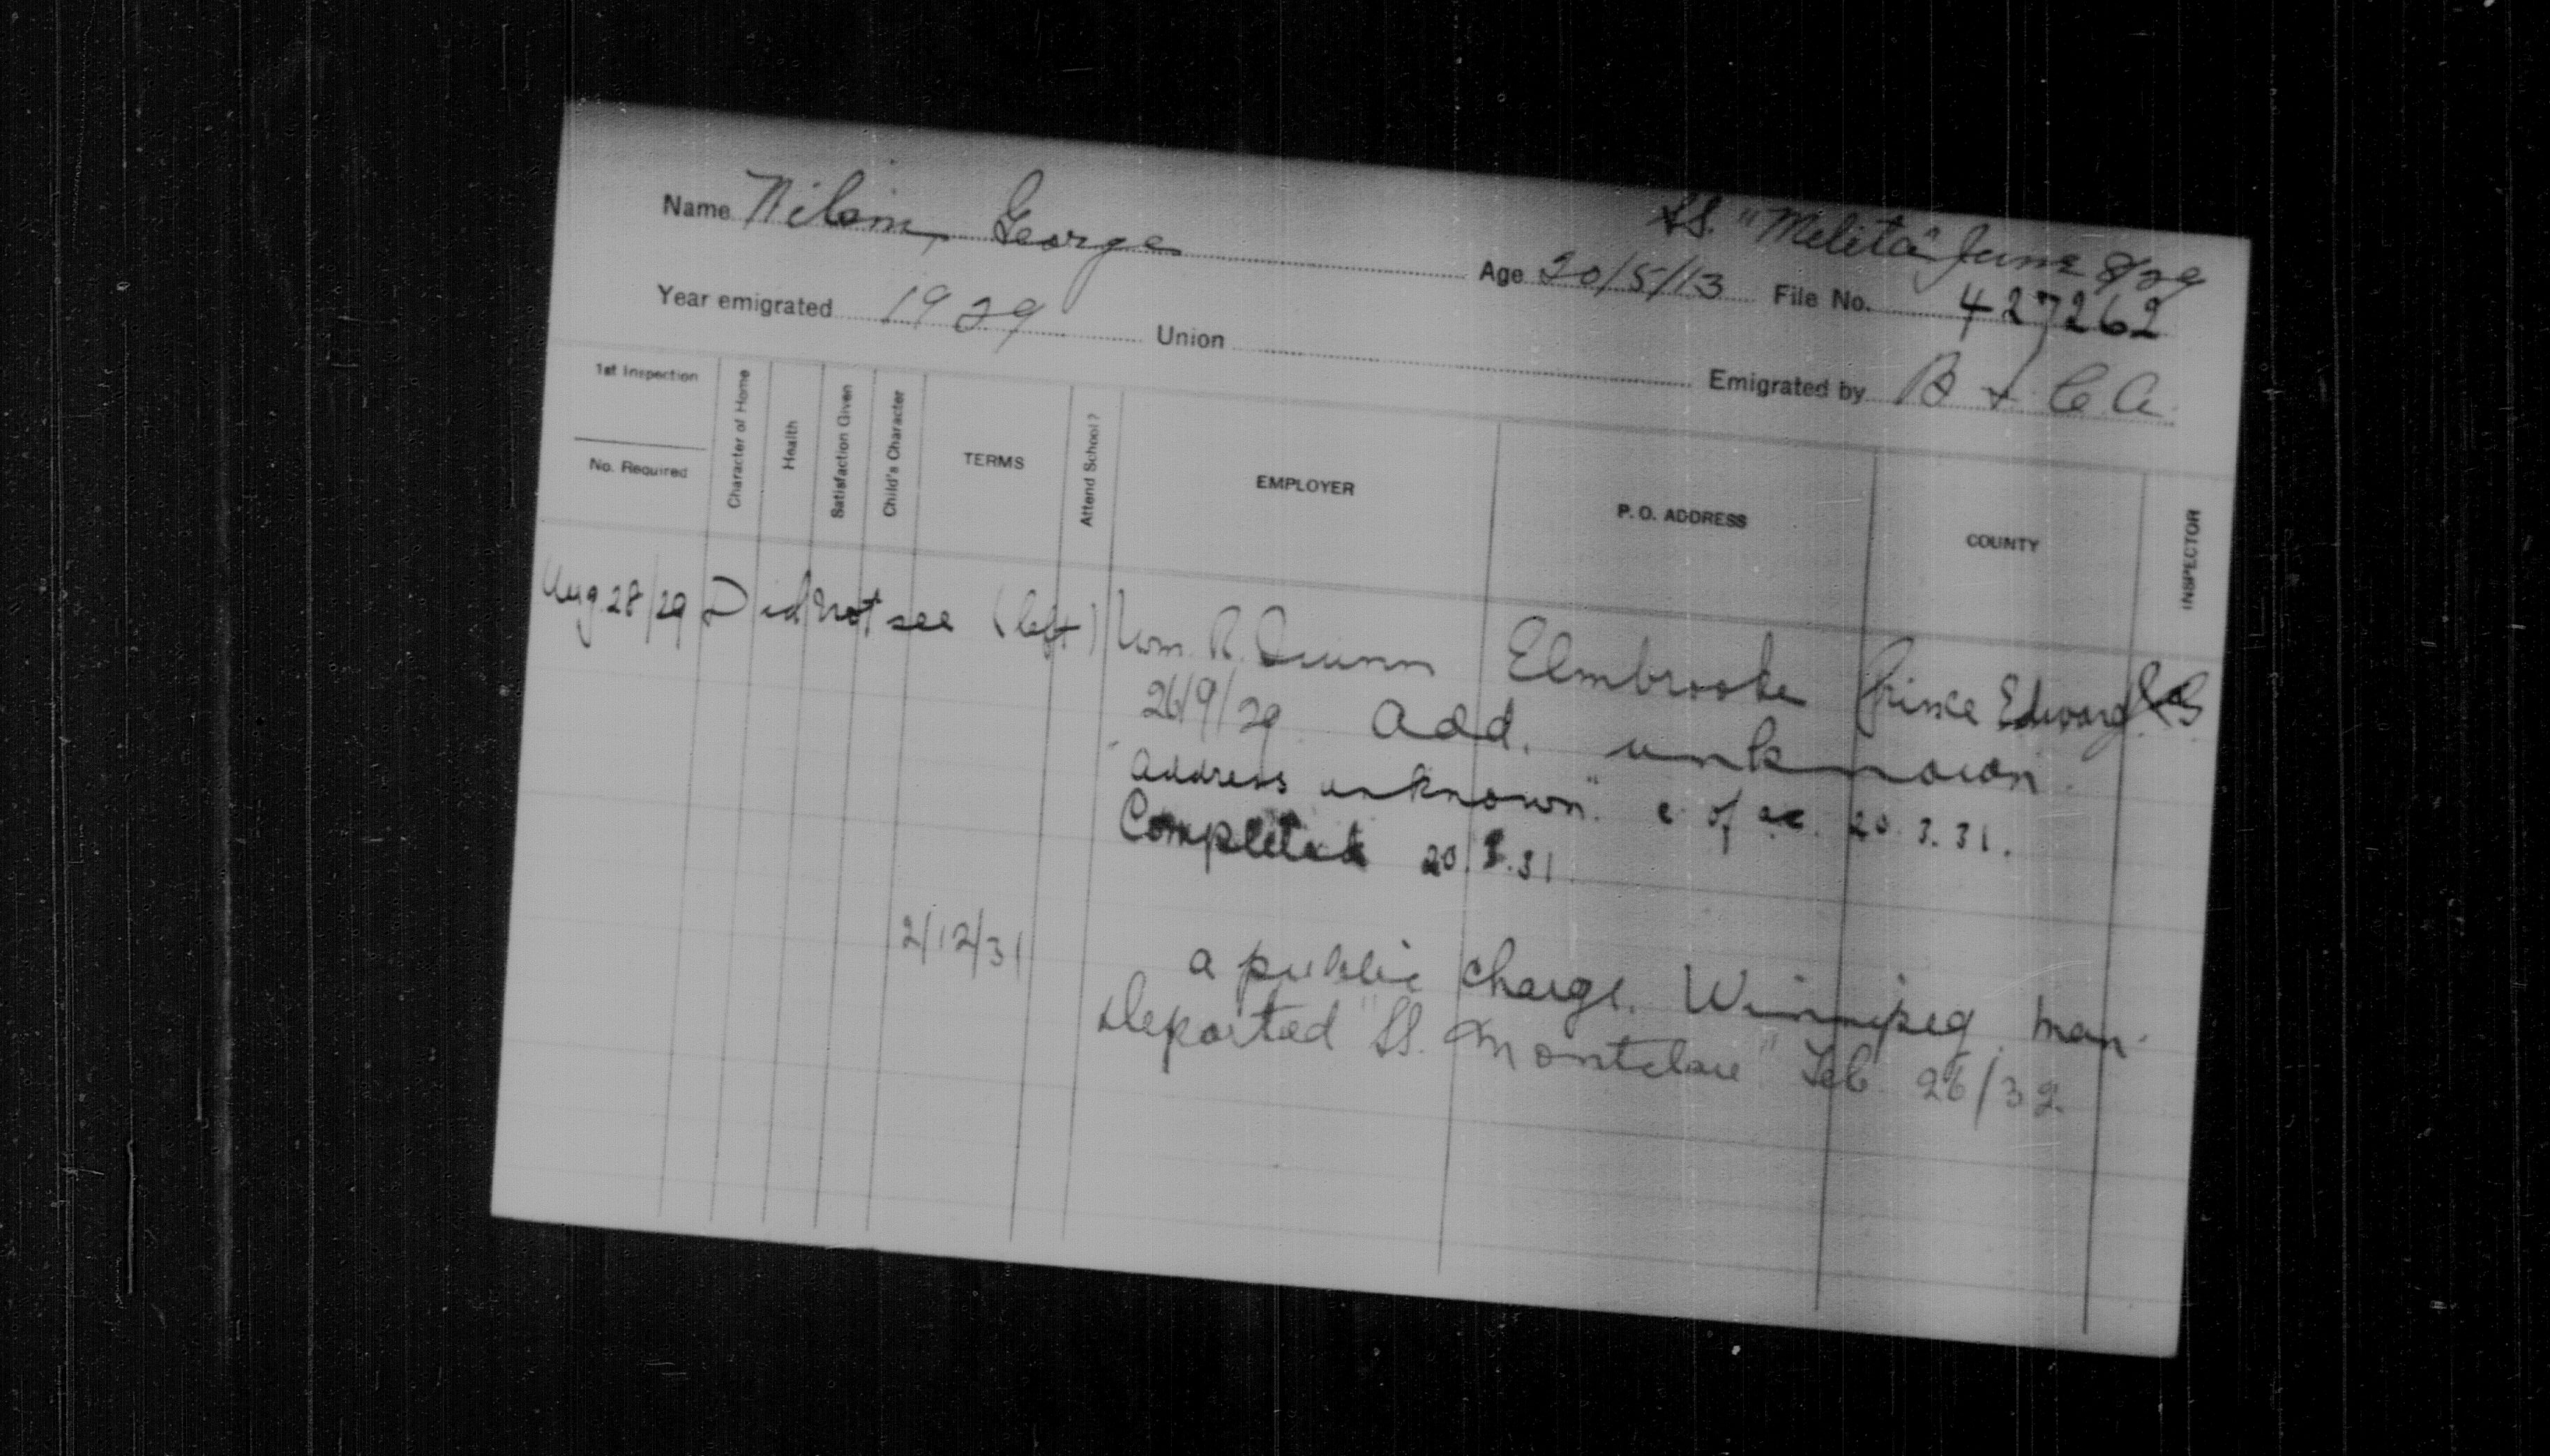 SS. "Melita" June 8/29
Name Wilson, George Age 20/5/13 File No. 427262
Year emigrated 1929 Union Emigrated by B & C A.
1st Inspection
No. Required
Character of Home
Health
Satisfaction Given
Child's Character
TERMS
Attend School?
EMPLOYER
P. O. ADDRESS
COUNTY
INSPECTOR
Aug 28/29 Did not see (left) Wm. R. Quinn Elmbrook Prince Edward
26/9/29 Add. unknown.
"Address unknown." c. of ac. 20.3.31.
Completed 20.3.31
2/12/31 a public charge. Winnipeg Man.
Deported "SS. Montclare" Feb 26/32